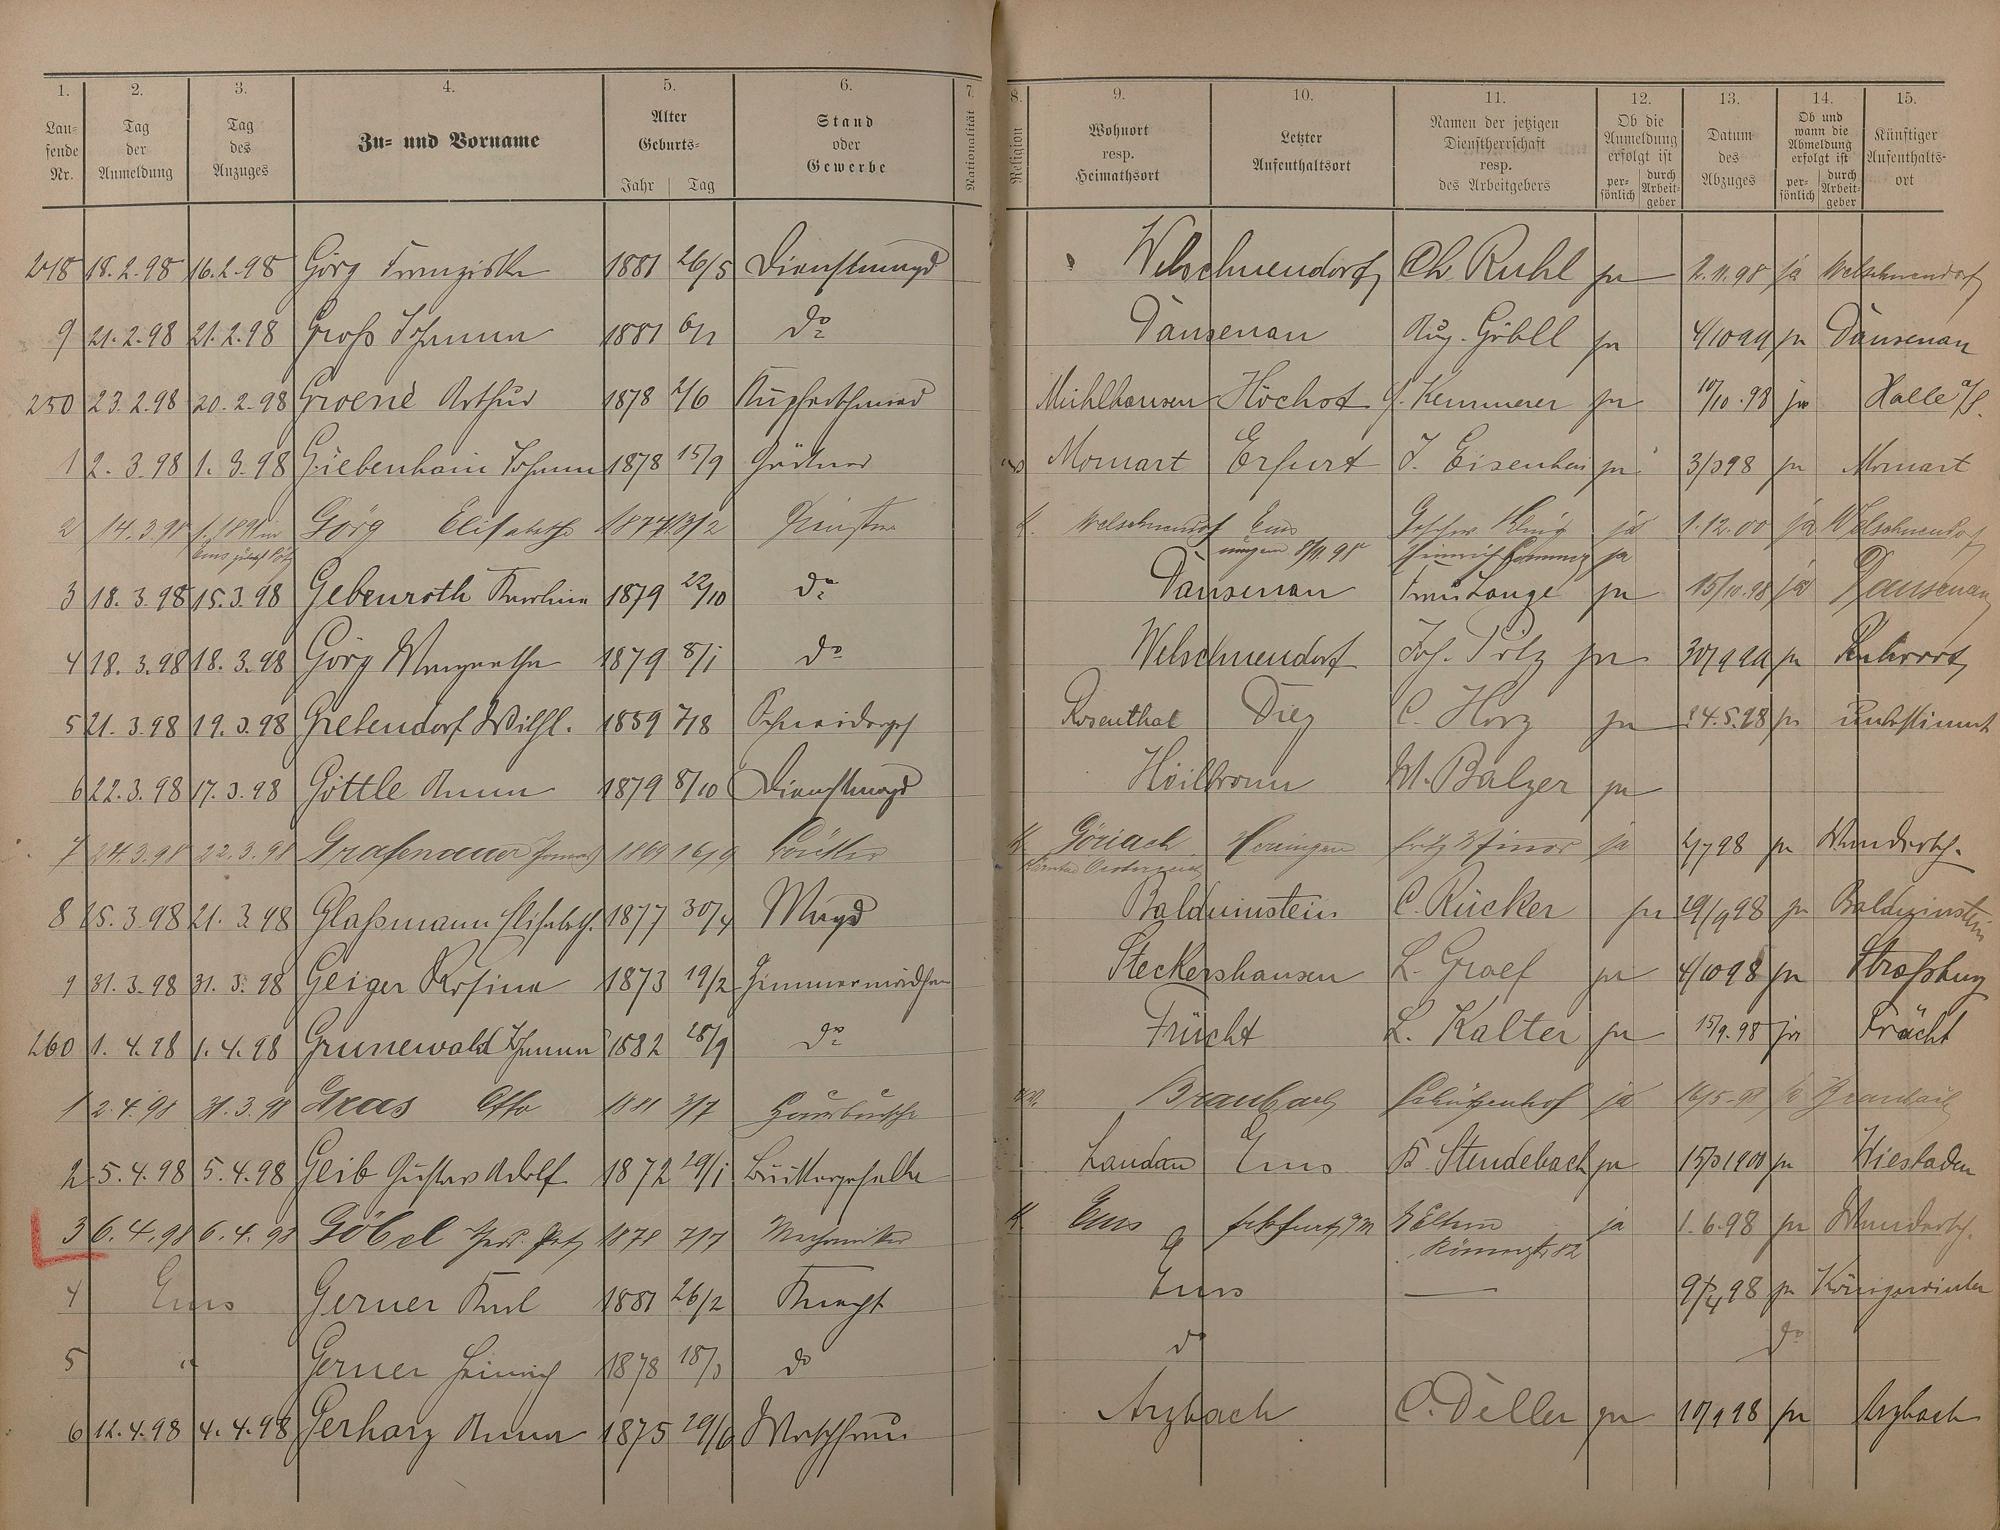 1. 2. 3. 4. 5. 6. 7. 8. 9. 10. 11. 12. 13. 14. 15.
Lau-
fende
Nr.
Tag
der
Anmeldung
Tag
des
Anzuges
Zu- und Vorname
Alter
Geburts-
Jahr Tag
Stand
oder
Gewerbe
Nationalität
Religion
Wohnort
resp.
Heimathsort
Letzter
Aufenthaltsort
Namen der jetzigen
Dienstherrschaft
resp.
des Arbeitgebers
Ob die
Anmeldung
erfolgt ist
per-
sönlich
durch
Arbeit-
geber
Datum
des
Abzuges
Ob und
wann die
Abmeldung
erfolgt ist
per-
sönlich
durch
Arbeit-
geber
Künftiger
Aufenthalts-
ort
248 18.2.98 16.2.98 Görg Franziska 1881 26/5 Dienstmagd Welschneudorf Ch. Ruhl ja 2.11.98 ja Welschneudorf
9 21.2.98 21.2.98 Groß Johanna 1881 do Dausenau Aug. Göbell ja 4/10 99 ja Dausenau
250 23.2.98 20.2.98 Groené Arthur 1878 2/6 Kupferschmied Mühlhausen Höchst Kemmerer ja 10/10.98 ja Halle a/S.
1 2.3.98 1.3.98 Giebenhain Johann 1878 15/9 Gärtner Momart Erfurt J. Eisenhein ja 3/3 98 ja Momart
2 14.3.98 Görg Elisabeth 1877 13/2 K. Welschneudorf Ems ja 1.12.00 ja Welschneudorf
Ems zuletzt 8/11 98 Heinrich ja
3 18.3.98 15.3.98 Gebenroth Karoline 1879 22/10 do Dausenau Frau Lange ja 15/10.98 ja Dausenau
4 18.3.98 18.3.98 Görg Margaretha 1879 8/1 do Welschneudorf Jos. Pilz ja 30/9 99 ja Ruhrort
5 21.3.98 19.3.98 Grebendorf Wilhl. 1859 7/8 Schneiderges Rosenthal Diez C. Horz ja 24.5.98 ja unbestimmt
6 22.3.98 17.3.98 Göttle Anna 1879 8/10 Dienstmagd Heilbronn M. Balzer ja
7 24.3.98 22.3.98 Grafenauer 1869 16/9 K. Göriach Fritz ja 2/7 98 ja Wandersch.
8 25.3.98 21.3.98 Glaßmann Elisabeth. 1877 30/4 Magd Balduinstein C. Rücker ja 29/9 98 ja Balduinstein
9 31.3.98 31.3.98 Geiger Rosina 1873 19/2 Zimmermädchen Steckershausen L. Graef ja 4/10 98 ja Straßburg
260 1.4.98 1.4.98 Grunewald Johanna 1882 28/9 do Frücht L. Kalter ja 15/9.98 ja Frücht
1 2.4.98 31.3.98 Gras Otto 1881 3/7 Hausbursche Braubach Schützenhof ja 16/5.98 ja Braubach
2 5.4.98 5.4.98 Geib Gustav Adolf 1872 29/1 Landau Ems Stendebach ja 15/3 1900 ja Wiesbaden
3 6.4.98 6.4.98 Göbel 1878 7/7 Mechaniker K. Ems Frankfurt a/M Eltern ja 1.6.98 ja Wandersch.
Römerstr 82
4 Ems Gerner Karl 1881 26/2 Knecht Ems — 9/4 98 ja Königswinter
5 " Gerner Heinrich 1878 18/3 do do do
6 12.4.98 4.4.98 Gerharz Anna 1875 29/6 Waschfrau Arzbach C. Deller ja 10/9 98 ja Arzbach